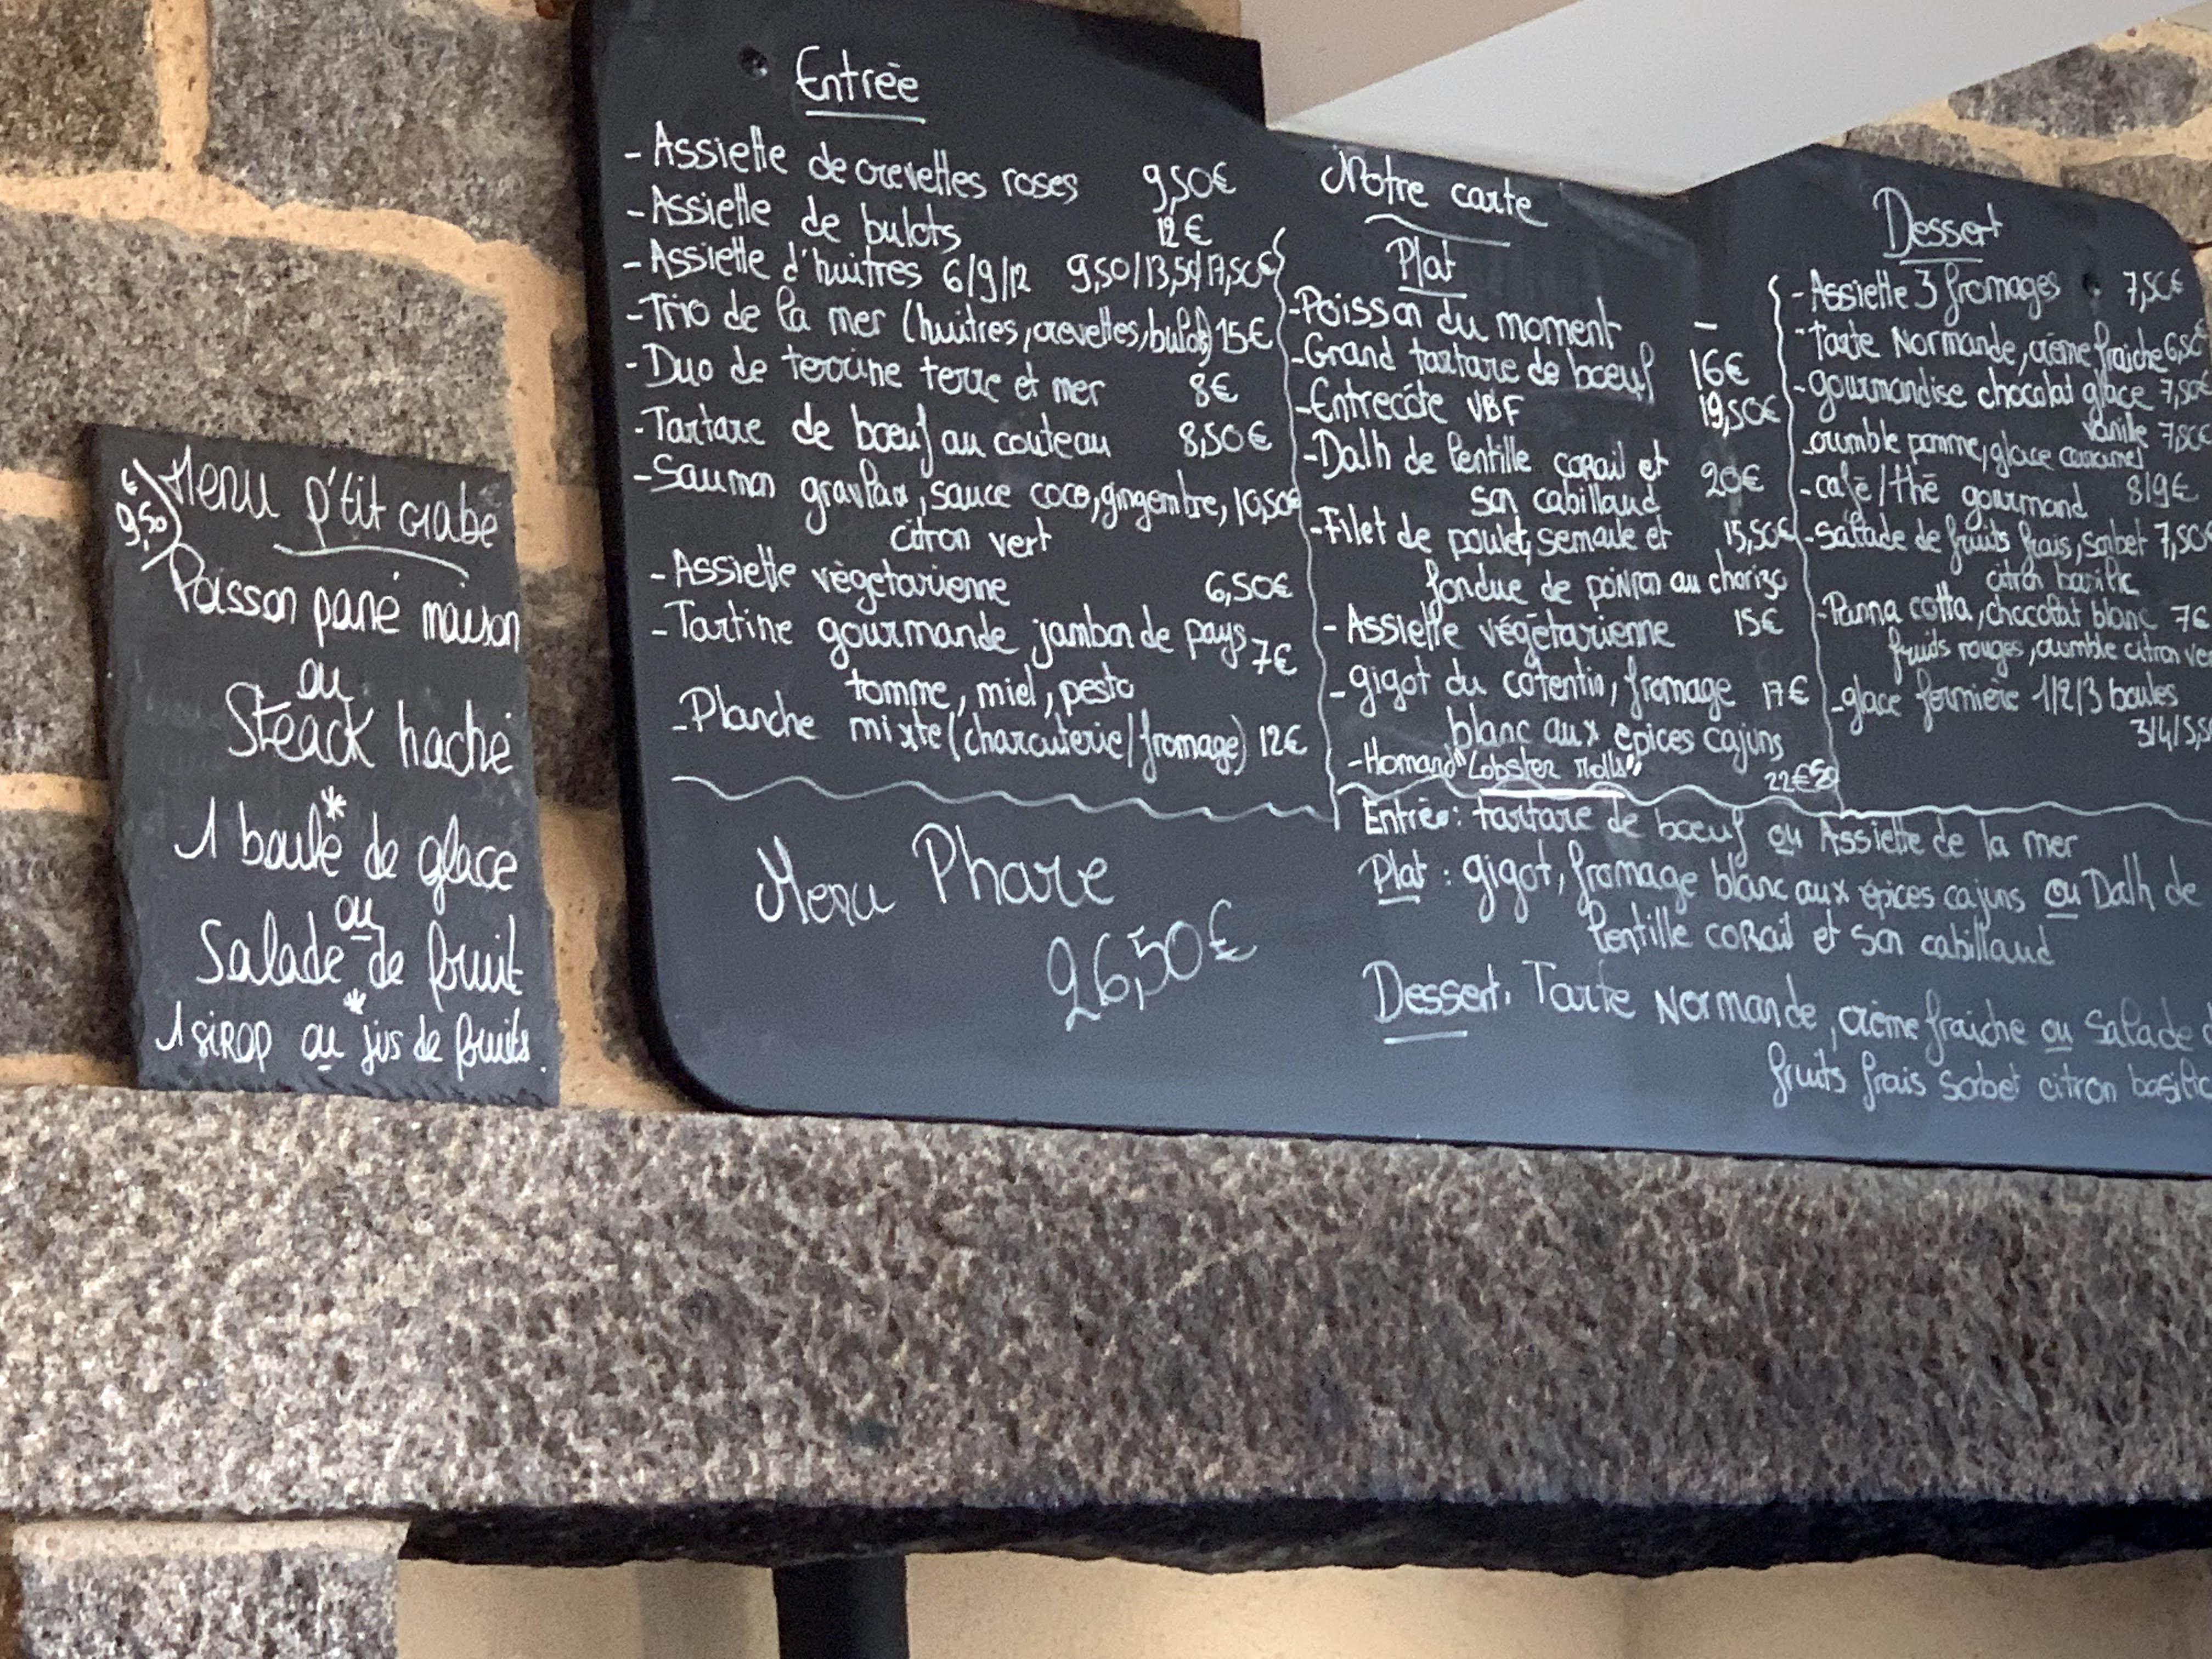 Menu p'tit crabe
9,50€
Poisson pané maison
ou
Steack haché
*
1 boule de glace
ou
Salade de fruit
*
1 sirop ou jus de fruits.
Entrée
- Assiette de crevettes roses 9,50€
- Assiette de bulots 12€
- Assiette d'huitres 6/9/12 9,50/13,50/17,50€
- Trio de la mer (huitres, crevettes, bulots) 15€
- Duo de terrine terre et mer 8€
- Tartare de bœuf au couteau 8,50€
- Saumon gravlax, sauce coco, gingembre, 10,50€
citron vert
- Assiette végétarienne 6,50€
- Tartine gourmande jambon de pays 7€
tomme, miel, pesto
- Planche mixte (charcuterie/fromage) 12€
Notre carte
Plat
- Poisson du moment –
- Grand tartare de bœuf 16€
- Entrecôte VBF 19,50€
- Dalh de lentille corail et 20€
son cabillaud
- Filet de poulet, semoule et 15,50€
fondue de poivron au chorizo
- Assiette végétarienne 15€
- gigot du cotentin, fromage 17€
blanc aux épices cajuns
- Homard "Lobster rolls" 22€50
Dessert
- Assiette 3 fromages 7,50€
- Tarte Normande, crème fraiche 6,50
- gourmandise chocolat glace 7,50
vanille
- crumble pomme, glace caramel 7,50€
- café/thé gourmand 8/9€
- Salade de fruits frais, sorbet 7,50
citron basilic
- Panna cotta, chocolat blanc 7€
fruits rouges, crumble citron ver
- glace fermière 1/2/3 boules
3/4/5,5
Menu Phare
26,50€
Entrée : tartare de bœuf ou Assiette de la mer
Plat : gigot, fromage blanc aux épices cajuns ou Dalh de
lentille corail et son cabillaud
Dessert. Tarte Normande, crème fraiche ou Salade
fruits frais sorbet citron basilic